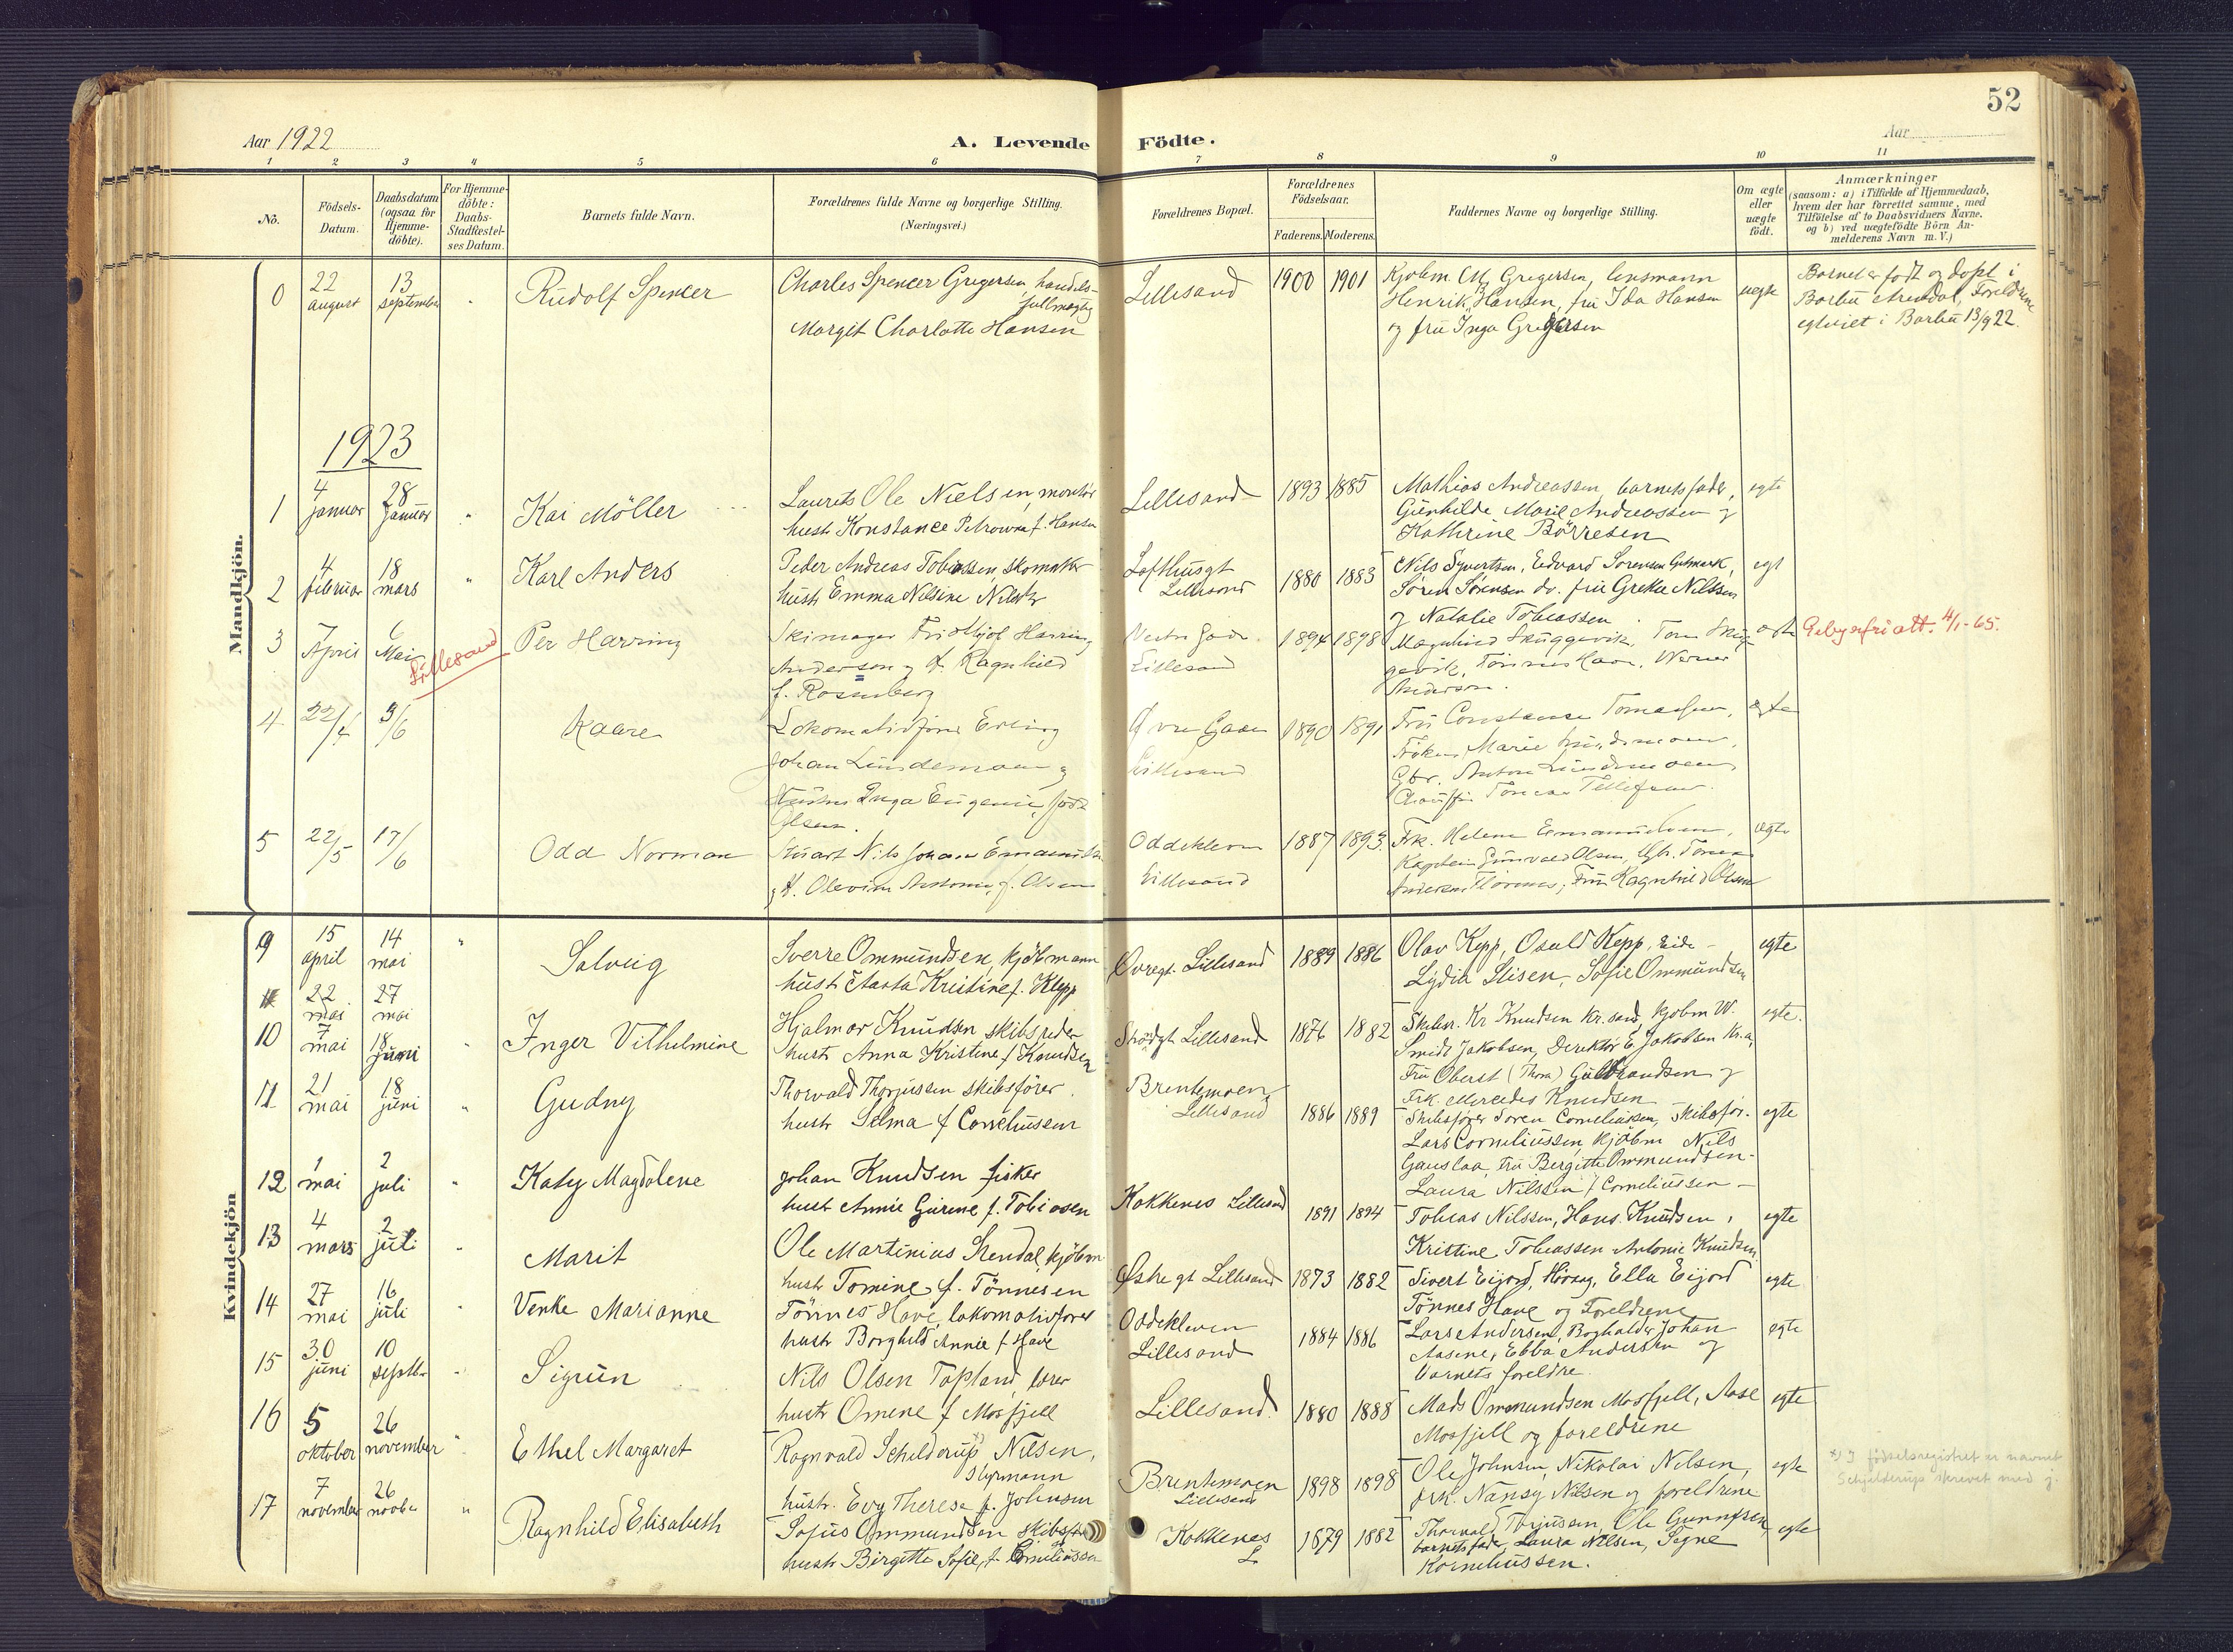 52
Aar 1922
A. Levende Födte.
Aar
1 2 3 4 5 6 7 8 9 10 11
No.
Födsels-
Datum.
Daabsdatum
(ogsaa for
Hjemme-
döbte).
For Hjemme-
döbte:
Daabs-
Stadfæstel-
ses Datum.
Barnets fulde Navn.
Forældrenes fulde Navne og borgerlige Stilling.
(Næringsvei.)
Forældrenes Bopæl.
Forældrenes
Födselsaar.
Faderens. Moderens.
Faddernes Navne og borgerlige Stilling.
Om ægte
eller
uægte
födt.
Anmærkninger
(saasom: a) i Tilfælde af Hjemmedaab,
hvem der har forrettet samme, med
Tilföielse af to Daabsvidners Navne.
og b) ved uægtefödte Börn An-
melderens Navn m. V.)
Mandkjön.
0
22
august
13
september
"
Rudolf Spencer
Charles Spencer Gregersen, handels-
fullmægtig
Margit Charlotte Hansen
Lillesand
1900 1901
Kjøbm. Gregersen, lensmann
Henrik Hansen, fru Ida Hansen
og fru Inga Gregersen
uegte
Barnet er født og døpt i
Barbu Arendal, Foreldrene
egteviet i Barbu 13/9 22.
1923
1
4
januar
28
januar
"
Kai Möller
Laurits Ole Nielsen, montør
hustr Konstance Petrowna f. Hansen
Lillesand
1893 1885
Mathias Andreassen, barnets fader,
Gunhilde Marie Andreassen og
Kathrine Börresen
egte
2
4
februar
18
mars
"
Karl Anders
Peder Andreas Tobiassen, skomaker
hustr Emma Nilsine
Lofthusgt
Lillesand
1880 1883
Nils Syvertsen, Edvard Sørensen
Søren Sørensen do. fru Nilssen
og Natalie Tobiassen
egt
3
April
6
Mai
Lillesand
Per Harring
Harring
Anderson og H. Ragnhild
f. Rosenberg
Lillesand
1894 1898
Magnhild Skuggevik, Tom Skug
gevik, Werner
Anderson.
egte
4/1-65.
4
22/4
3/6
Kaare
Lokomotivfører Erling
Johan Lindemoen og
Hustru Inga Eugenie, født
Olsen.
Øvre Gaden
Lillesand
1890 1891
Fru Constance
Frøken Marie
Gbr. Anton Lindemoen
Tellefsen.
egte
5
22/5
17/6
Odd Norman
Stuart Nils Johan
H. Olevine f. Olsen
Oddekleven
Lillesand
1887 1893.
Frk. Helene
Kaptein Gunvald Olsen,
Andersen Fru Ragnhild Olsen
egte
Kvindekjön
9
15
april
14
mai
"
Solveig
Sverre Ommundsen, kjøbmann
hustr Aasta Kristine f. Kepp
Øvregt. Lillesand
1889 1886
Olav Kepp, Osuld Kepp, Eide -
Lydia Sofie Ommundsen
egte
22
mai
27
mai
10
7
mai
18
juni
"
Inger Vilhelmine
Hjalmar Knudsen, skibsreder
hustr Anna Kristine f Knudsen
Strandgt Lillesand
1876 1882
Skibsr. Kr Knudsen Kr.sand, kjøbm W.
Smidt Jakobsen, Direktør E. Jakobsen Kr.a,
Fru Oberst (Thora) Guldbrandsen og
Frk. Mercedes Knudsen
egte.
11
21
mai
18
juni
"
Gudny
Thorvald Thorjussen skibsfører
hustr Selma f Corneliussen
Brentemoen,
Lillesand
1886 1889
Skibsfører Soren Corneliussen, skibsfør.
Lars Corneliussen, kjøbm Nils
Gauslaa, Fru Bergitte Ommundsen
Laura Nilssen f Corneliussen -
egte
12
1
mai
2
juli
"
Katy Magdalene
Johan Knudsen fisker
hustr Annie Gurine f. Tobiasen
Kokkenes Lillesand
1891 1894
Tobias Nilssen, Hans Knudsen,
Kristine Tobiassen Antonie Knudsen
egte
13
4
mars
2
juli
"
Marit
Ole Martinius Stendal, kjøbm
hustr Tomine f. Tönnesen
Østregt Lillesand
1873 1882
Sivert Eijord, Høvaag, Ella Eijord
Tönnes Have og Foreldrene
egte
14
27
mai
16
juli
"
Venke Marianne
Tönnes Have, lokomotivfører
hustr Borghild Annie f Have
Oddekleven
Lillesand
1884 1886
Lars Andersen, Boghalder Johan
Aasene, Ebba Andersen og
barnets foreldre
egte
15
30
juni
10
septbr
"
Sigrun
Nils Olsen Topland, lærer
hustr Omine f Mosfjell
Lillesand
1880 1888
Mads Ommundsen Mosfjell, Aase
Mosfjell og foreldrene
egte
16
5
oktober
26
november
"
Ethel Margaret
Ragnvald Schilderup x) Nilsen,
styrmann
hustr. Evy Therese f. Johnsen
Brentemoen
Lillesand
1898 1898
Ole Johnsen, Nikolai Nilsen,
frk. Nansy Nilsen og foreldrene
egte
x) I fødselsregistret er navnet
Schjelderup skrevet med j.
17
7
november
26
novbr
"
Ragnhild Elisabeth
Sofus Ommundsen skibsfø
hustr Birgitte Sofie f. Corneliussen
Kokkenes
L
1879 1882
Thorvald Thorjussen, Ole Gunnufsen,
barnets fader, Laura Nilsen, Signe
Korneliussen.
egte